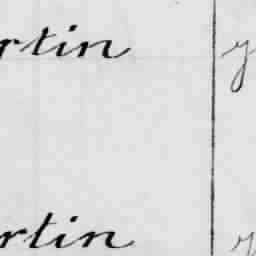 rtin y
rtin y